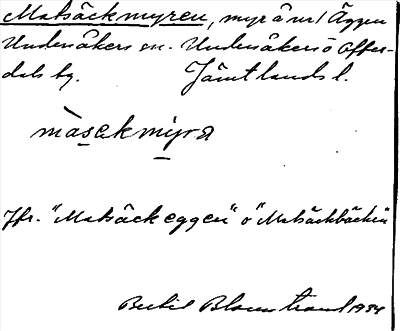 Matsäckmyren, myr å nv/ Äggen
Undersåkers sn. Undersåkers o Offer-
dals tg. Jämtlands l.
màsakmyra
Jfr. "Matsäckeggen" o "Matsäckbäcken"
Bertil Blomstrand 1934